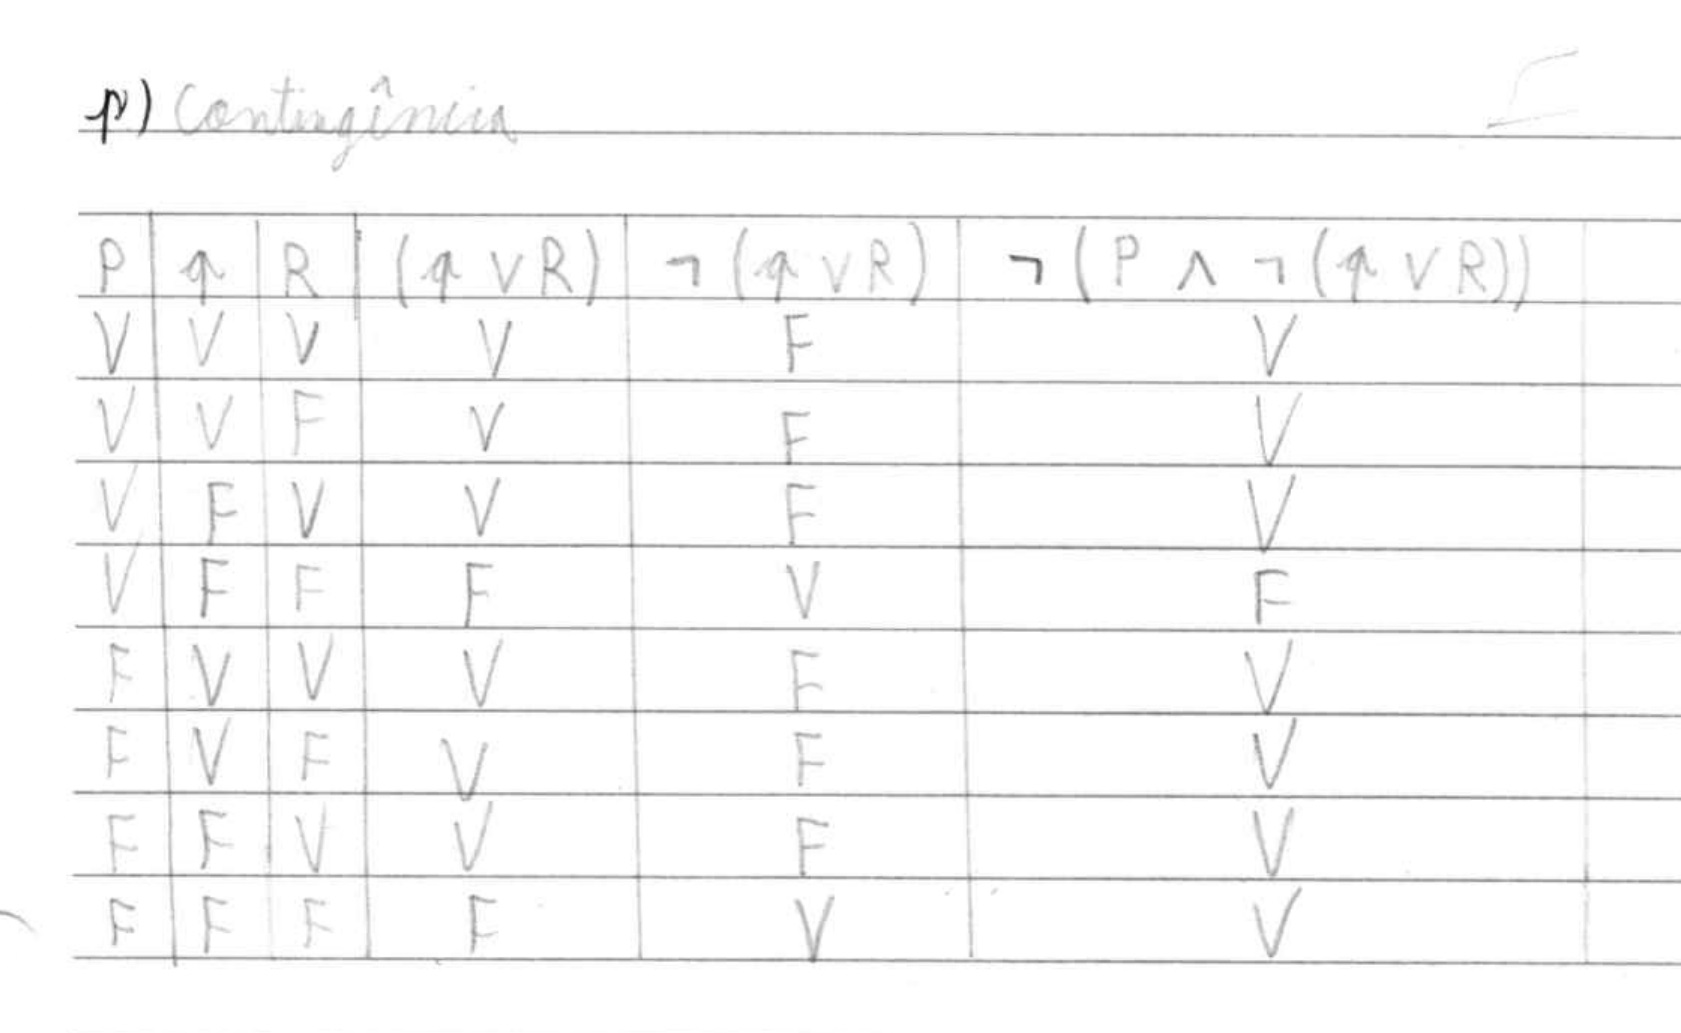 p) Contingência
P | q | R | (q ∨ R) | ¬ (q ∨ R) | ¬ (P ∧ ¬ (q ∨ R))
V | V | V | V | F | V
V | V | F | V | F | V
V | F | V | V | F | V
V | F | F | F | V | F
F | V | V | V | F | V
F | V | F | V | F | V
F | F | V | V | F | V
F | F | F | F | V | V